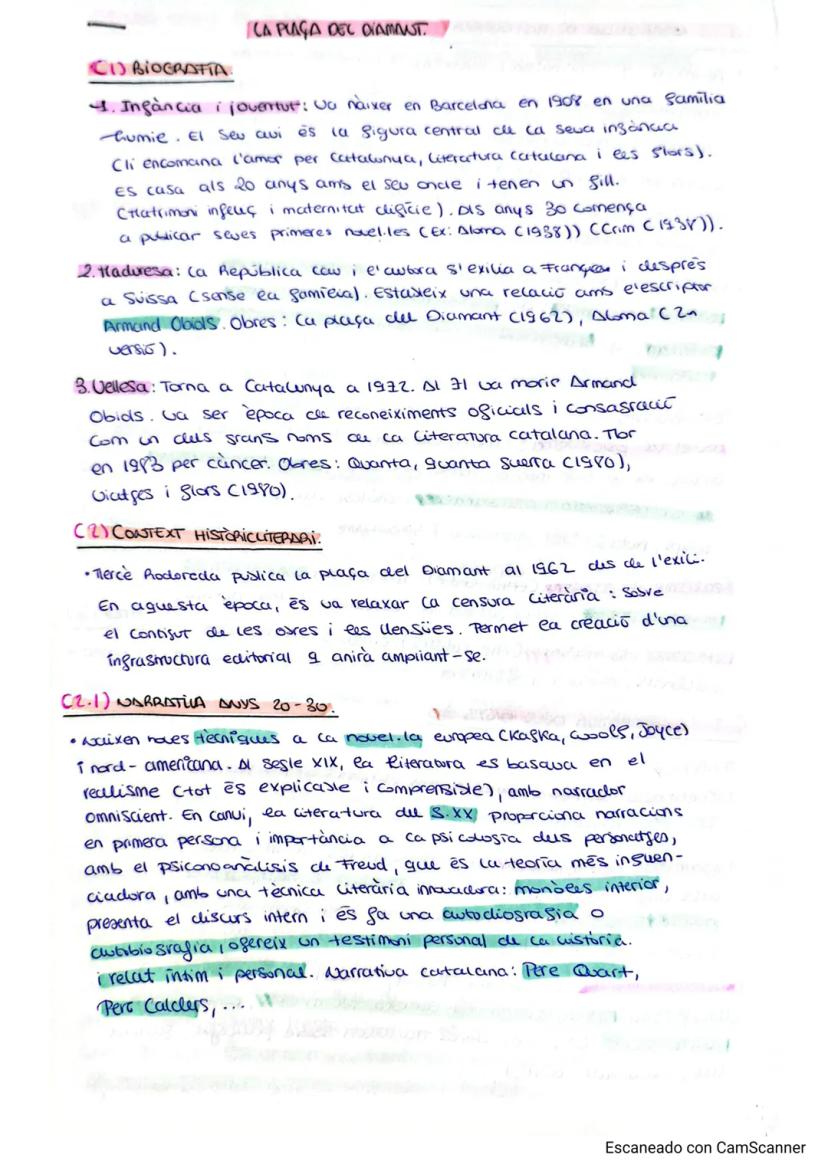 LA PLAÇA DEL DIAMANT.
C1) BIOGRAFIA.
1. Infància i joventut: Va nàixer en Barcelona en 1908 en una família
humie. El seu avi és la figura central de la seua infància
(li encomana l'amor per Catalunya, literatura catalana i les flors).
Es casa als 20 anys amb el seu oncle i tenen un fill.
(Matrimoni infeliç i maternitat difície). Als anys 30 comença
a publicar seves primeres novel·les (Ex: Aloma (1938)) (Crim (1938)).
2. Maduresa: La República cau i l'autora s'exilia a França i després
a Suïssa (sense la família). Estableix una relació amb l'escriptor
Armand Obiols. Obres: La plaça del Diamant (1962), Aloma (2n
versió).
3. Vellesa: Torna a Catalunya a 1972. Al 71 va morir Armand
Obiols. Va ser època de reconeiximents oficials i consagració
com un dels grans noms de la literatura catalana. Mor
en 1983 per càncer. Obres: Quanta, quanta guerra (1980),
Viatges i flors (1980).
C2) CONTEXT HISTÒRICLITERARI:
• Mercè Rodoreda publica la plaça del Diamant al 1962 des de l'exili.
En aquesta època, és va relaxar la censura literària: sobre
el contigut de les obres i les llengües. Permet la creació d'una
infrastructura editorial q anirà ampliant-se.
C2.1) NARRATIVA ANYS 20-30.
• Naixen noves tècniques a la novel·la europea (Kafka, Woolf, Joyce)
i nord-americana. Al segle XIX, la literatura es basava en el
realisme (tot és explicable i comprensible), amb narrador
omniscient. En canvi, la literatura del S.XX proporciona narracions
en primera persona i importància a la psicologia dels personatges,
amb el psiconoanàlisis de Freud, que és la teoria més influen-
ciadora, amb una tècnica literària innovadora: monòleg interior,
presenta el discurs intern i és fa una autodiografia o
autobiografia, ofereix un testimoni personal de la història.
i relat íntim i personal. Narrativa catalana: Pere Quart,
Pere Calders, ...
Escaneado con CamScanner